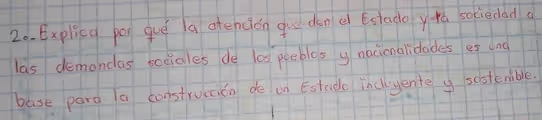 2.- Explica por qué la atención que den el Estado y la sociedad a
las demandas sociales de los pueblos y nacionalidades es una
base para la construcción de un Estado incluyente y sostenible.